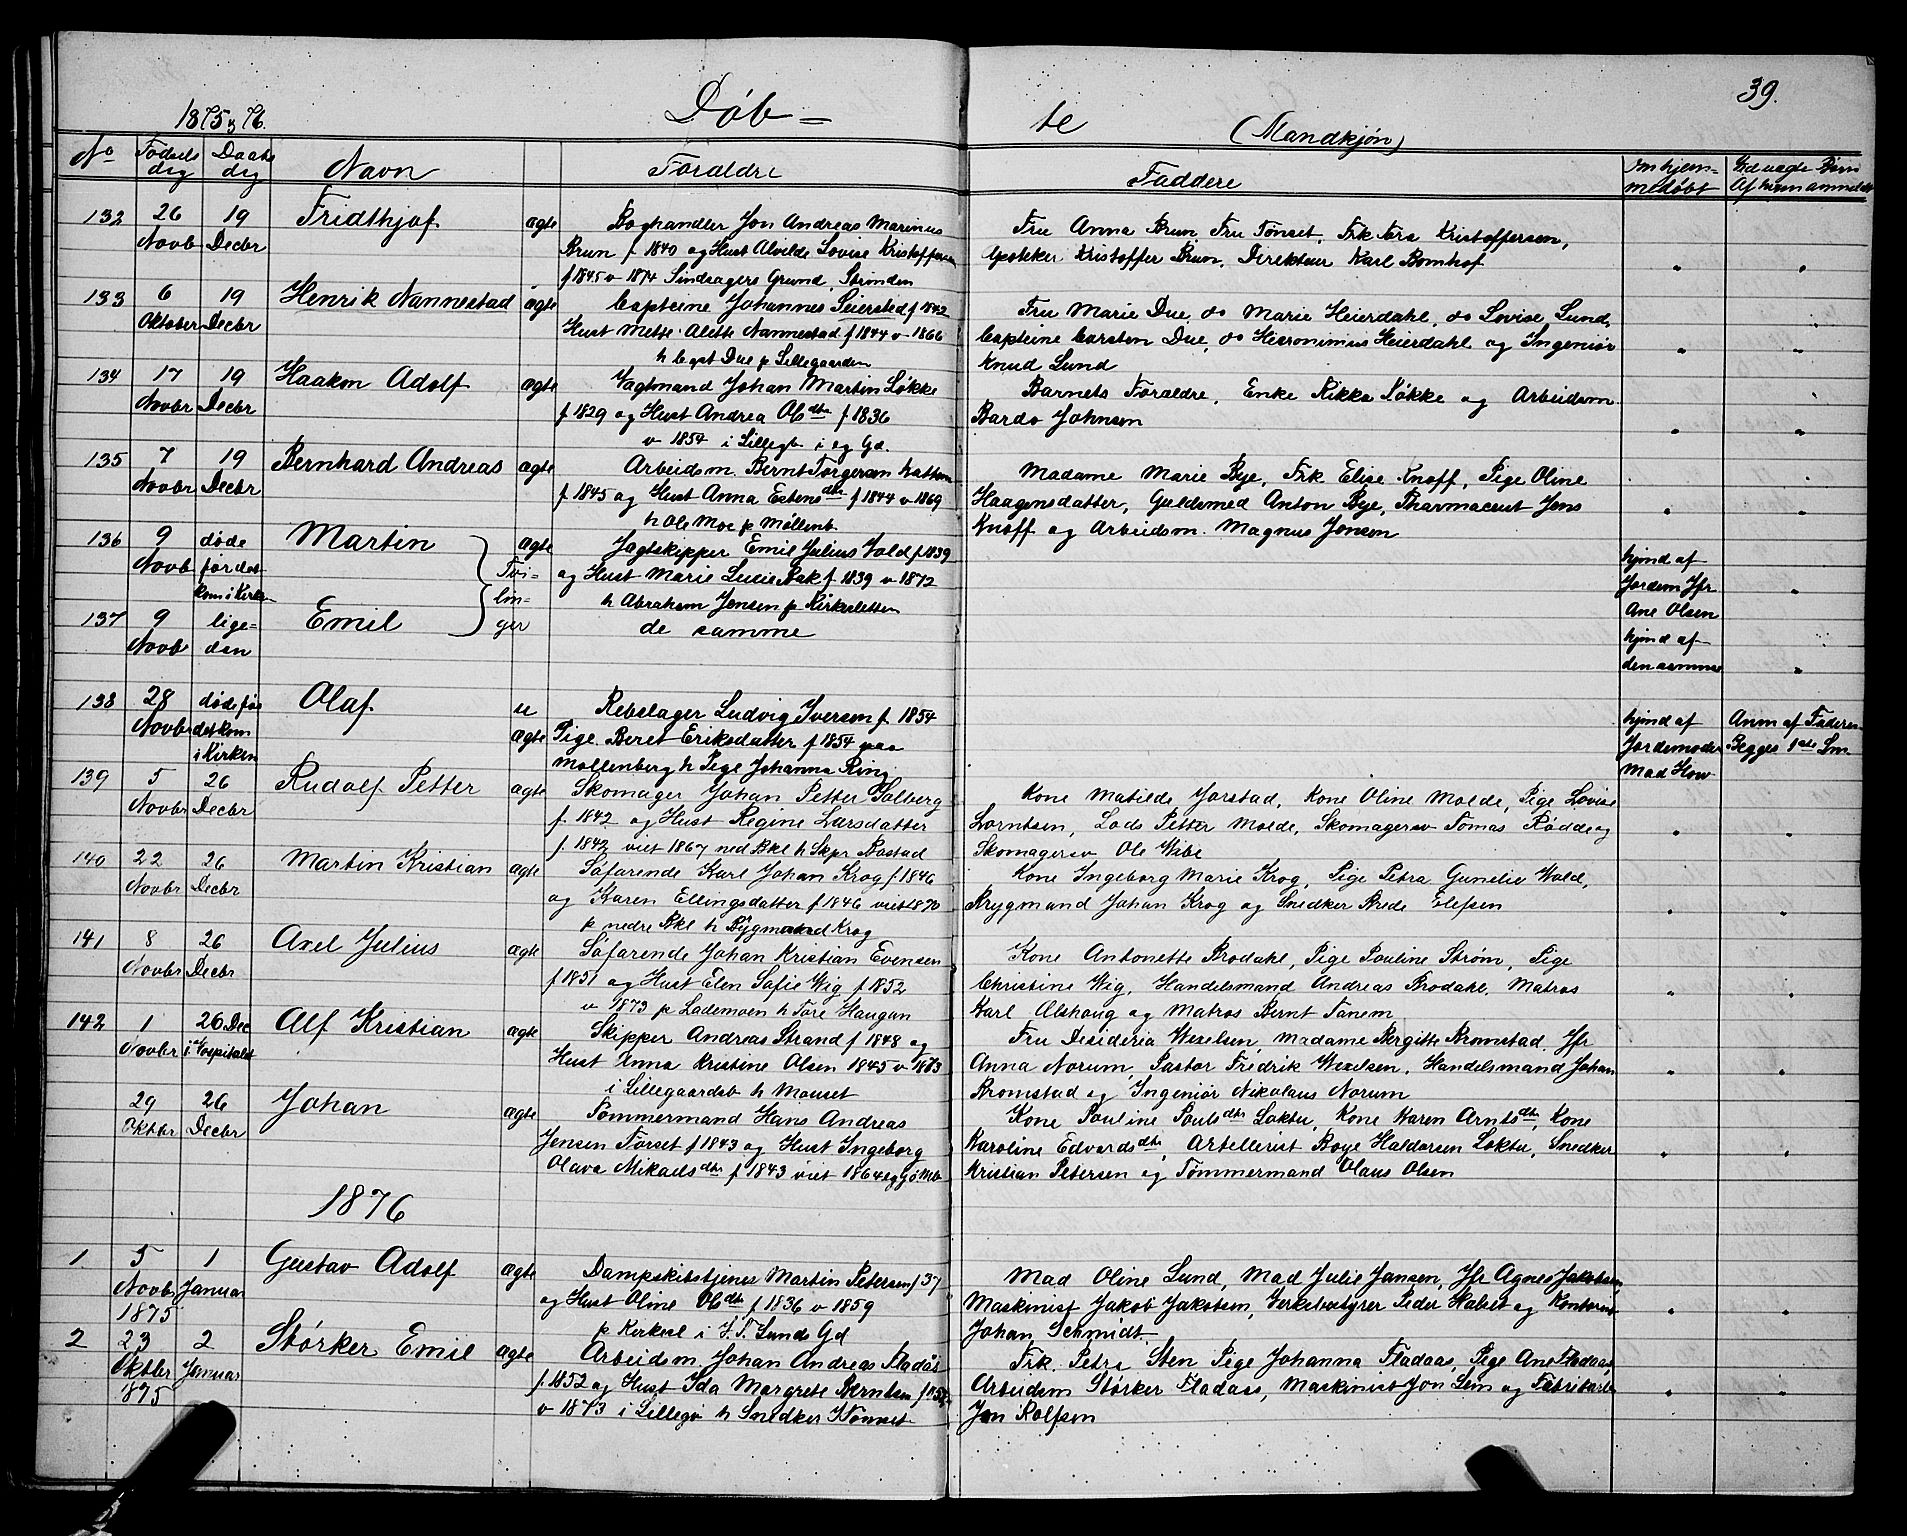 39.
1875 & 76. Døb - te (Mandkjøn)
No Fødsels dag Daabs dag Navn Forældre Faddere Om hjem- medøbt Ved uægte Børn Af hvem anmeldt
132 26 Novb 19 Decbr Fridthjof ægte Boghandler Jon Andreas Marinus
Brun f 1840 og Hust Alvilde Lovise Kristoffersen
f 1845 v 1874 Sindsagers Grund, Strinden
Fru Anna Brun Fru Tønset, Frk Tora Kristoffersen,
Apoteker Kristoffer Brun, Direkteur Karl Bomhof
133 6 Oktober 19 Decbr Henrik Nannestad ægte Capteine Johannes Seiersted f 1842
Hust Mette Alette Nannestad f 1844 v 1866
h Capt Due p Lillegaarden
Fru Marie Due, do Marie Heierdahl, do Lovise Lund,
Capteine Carsten Due, do Hieronimus Heierdahl og Ingeniør
Knud Lund
134 17 Novbr 19 Decbr Haakon Adolf ægte Vagtmand Johan Martin Løkke
f 1829 og Hust Andrea Olsdtr f 1836
v 1854 i Lillegb i eg Gd.
Barnets Forældre, Enke Rikka Løkke og Arbeidsm.
Bardo Johnsen
135 7 Novbr 19 Decbr Bernhard Andreas ægte Arbeidsm. Bernt Torgersen
f 1845 og Hust Anna Estensdtr f 1844 v 1869
h Ole Moe p Møllenb.
Madame Marie Bye, Frk Elise Knoff, Pige Oline
Haagensdatter, Guldsmed Anton Bye, Pharmaceut Jens
Knoff og Arbeidsm. Magnus Jensen
136 9 Novb døde før det kom i Kirken Martin ægte Tvi- lin- ger Jagtskipper Emil Julius Vold f 1839
og Hust Marie Lucie Bak f 1839 v 1872
h Abraham Jensen p Kirkesletten
hjmd af
Jordem Jfr
Ane Olsen
137 9 Novb lige- dan Emil de samme
hjmd af
den samme
138 28 Novbr døde før det kom i Kirken Olaf u ægte Rebslager Ludvig Iversen f 1854
Pige Beret Eriksdatter f 1854 paa
Møllenberg h Pige Johanna Ring
hjmd af
Jordemoder
Mad How
Anm af Faderen
Begges 1ste Lm
139 5 Novbr 26 Decbr Rudolf Petter ægte Skomager Johan Petter Solberg
f. 1842 og Hust Regine Larsdatter
f. 1842 viet 1867 ned Bkl h Skpr Bostad
Kone Matilde Jorstad, Kone Oline Molde, Pige Lovise
Lorntsen, Lods Petter Molde, Skomagersv Tomas Rødde og
Skomagersv Ole Wibe
140 22 Novbr 26 Decbr Martin Kristian ægte Søfarende Karl Johan Krog f 1846
og Karen Ellingsdatter f 1846 viet 1870
p nedre Bkl h Bygmand Krog
Kone Ingeborg Marie Krog, Pige Petra Guneliv Wold,
Brygmand Johan Krog og Snedker Brede Olefsen
141 8 Novbr 26 Decbr Axel Julius ægte Søfarende Johan Kristian Evensen
f 1851 og Hust Elen Sofie Wig f 1852
v 1873 p Lademoen h Tore Haugan
Kone Antonette Brodahl, Pige Pauline Strøm, Pige
Christine Wig, Handelsmand Andreas Brodahl, Matros
Karl Alshaug og Matros Bernt Tanem
142 1 Novbr 26 Dec i Hospitalet Alf Kristian ægte Skipper Andreas Strand f 1848 og
Hust Anna Kristine Olsen 1845 v 1873
i Lillegaardsb h Mouset
Fru Desideria Wexelsen, Madame Bergitte Bromstad, Jfr
Anna Norum, Pastor Fredrik Wexelsen, Handelsmand Johan
Bromstad og Ingeniør Nikolaus Norum
29 Oktbr 26 Decbr Johan ægte Tømmermand Hans Andreas
Jensen Torset f 1843 og Hust Ingeborg
Olava Mikaelsdtr f 1843 viet 1864
Kone Pauline Paulsdtr Løktu, Kone Karen Arntsdtr, Kone
Karoline Edvardsdtr, Artellerist Boye Haldorsen Løktu, Snedker
Kristian Petersen og Tømmermand Olaus Olsen
1876
1 5 Novbr 1875 1 Januar Gustav Adolf ægte Dampskibstjenes Martin Petersen f 37
og Hust Oline Olsdtr f 1836 v 1859
p Kirkesl i J. T. Lunds Gd
Mad Oline Lund, Mad Julie Jansen, Jfr Agnes Jakobsen,
Maskinist Jakob Jakobsen, Verksbestyrer Peder Habset og Kontorist
Johan Schmidt
2 23 Oktbr 1875 2 Januar Størker Emil ægte Arbeidsm. Johan Andreas Fladås
f. 1852 og Hust Ida Margrete Berntsen f 1852
v 1873 i Lillegd h Snedker
Frk. Petra Sten Pige Johanna Fladaas, Pige Ane Fladaas,
Arbeidsm Størker Fladaas, Maskinist Jon Lem og Fabrikarb
Jon Rolfsen